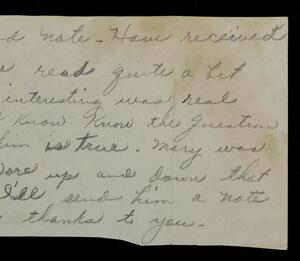 d note - Have received
e read quite a bit
interesting was real
I Know Know the Question
him is true. Mary was
wore up and down that
I'll send him a note
thanks to you.